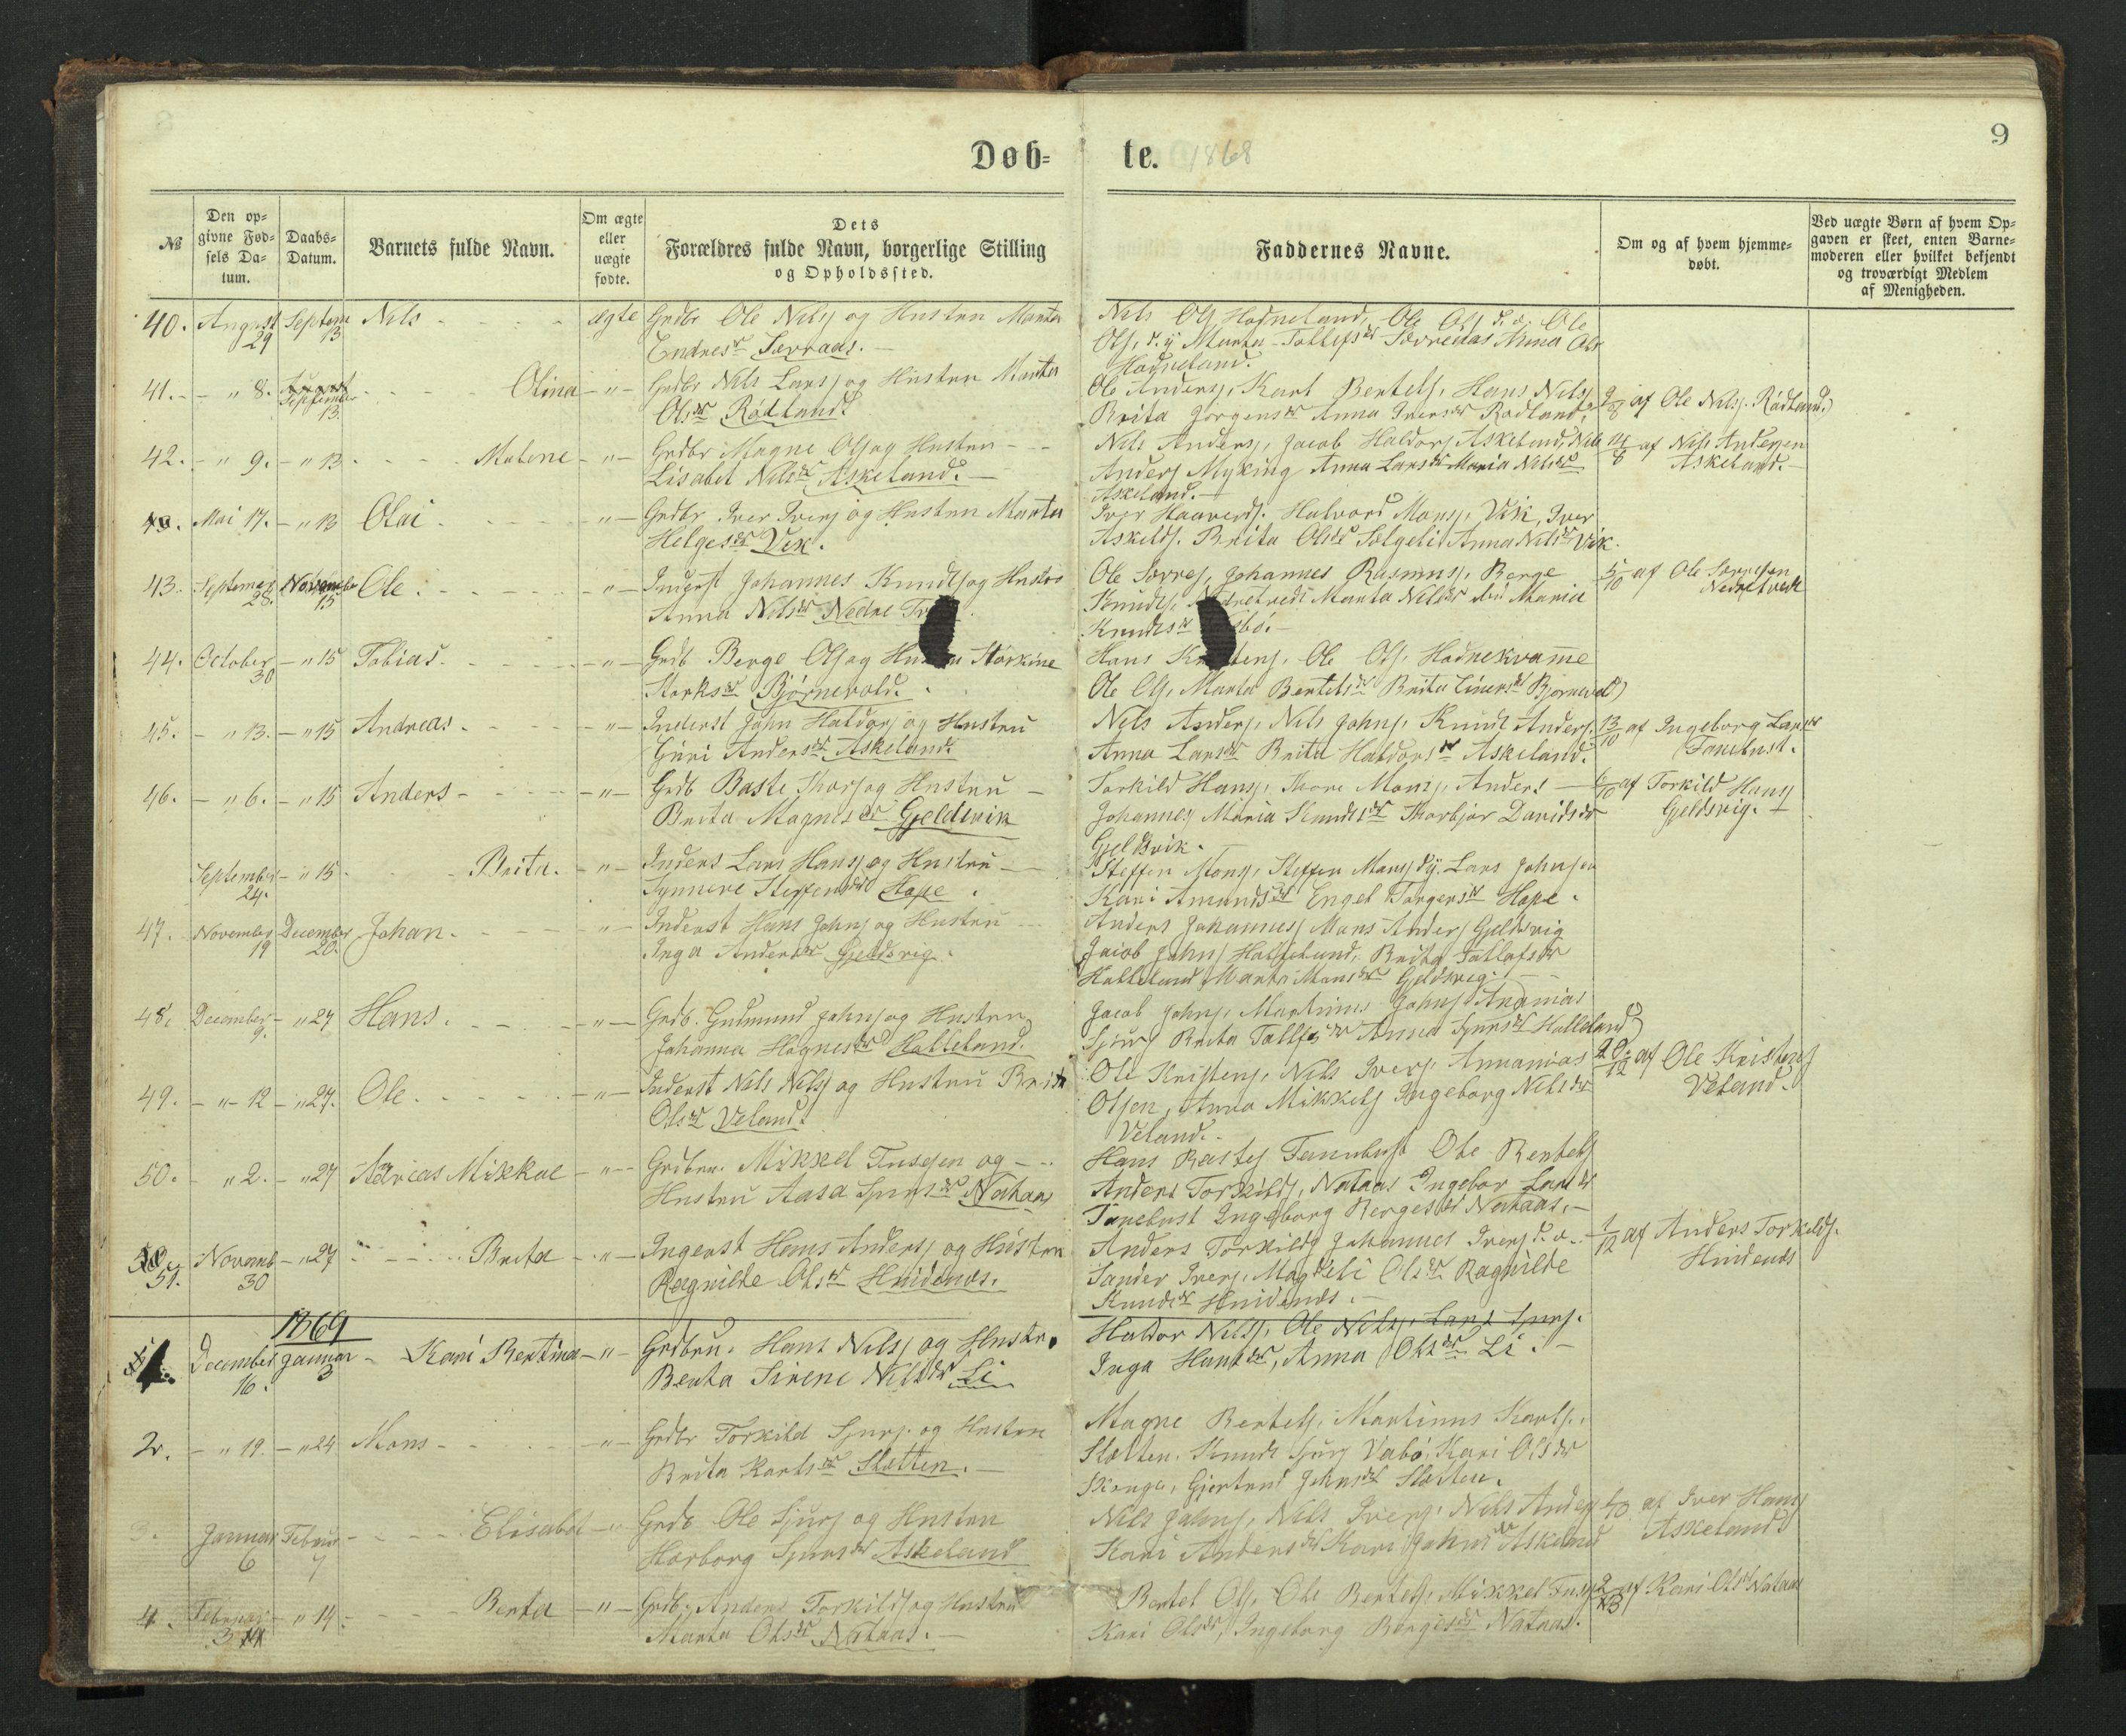 9
Døb= te. 1868
№
Den op=
givne Fød=
sels Da=
tum.
Daabs=
Datum.
Barnets fulde Navn.
Om ægte
eller
uægte
fødte.
Dets
Forældres fulde Navn, borgerlige Stilling
og Opholdssted.
Faddernes Navne.
Om og af hvem hjemme=
døbt.
Ved uægte Børn af hvem Op=
gaven er skeet, enten Barne=
moderen eller hvilket bekjendt
og troværdigt Medlem
af Menigheden.
40. August 29 Septem 13 Nils ægte Grdbr Ole Nilsj og Hustru Marta
Endresdr Særraas.
Nils Olsj Hodneland, Ole Olsj d.æ. Ole
Olsj. d.y Marta Tollefsdr Anna Olsdr
Hodneland.
41. " 8. September 13. Olina " Grdbr Nils Larsj og Hustru Marta
Olsdr Rødland.
Ole Andersj, Karl Bertelsj, Hans Nilsj
Brita Jørgensdr Anna Iversdr Rødland.
9/8 af Ole Nilsj. Rødland
42. " 9. " 13 Malene " Grdbr Magne Olsj og Hustru
Lisabet Nilsdr Askeland.
Nils Andersj, Jacob Haldorsj Askeland, Nils
Andersj Myking Anna Larsdr Maria Nilsdr
Askeland.
14/8 af Nils Andersen
Askeland.
Mai 17. " 13 Olai " Grdbr Iver Iversj og Hustru Marta
Helgesdr Vik.
Iver Haavardsj. Halvard Monsj, Vik, Iver
Askeldsj. Brita Olsdr Anna Nilsdr Vik.
43. September 28. November 15 Ole " Inderst Johannes Knudsj og Hustru
Anna Nilsdr Nedre
Ole Sørresj, Johannes Rasmusj, Berge
Knudsj, Nedretvedt Marta Nilsdr Maria
Knudsdr
5/10 af Ole Sørresen
Nedretvedt
44. October 30 " 15 Tobias. " Grdb Berge Olsj og Hustru Størkine
Størksdr Bjørnevold.
Hans Olsj. Ole Olsj. Hodnekvamme
Ole Olsj, Marta Bertelsdr Brita Einersdr Bjørnevold
45. " 13. " 15 Andreas. " Inderst John Haldorsj og Hustru
Guri Andersdr Askeland.
Nils Andersj, Nils Johnsj. Knudt Andersj.
Anna Larsdr Brita Haldorsdr Askeland.
13/10 af Ingeborg Larsdr
Tanebust.
46. " 6. " 15 Anders " Grdb Baste Thorsj og Hustru
Brita Magnesdr Gjeldsvik
Torkild Hansj, Thore Monsj, Anders
Johannesj Maria Knudsdr Thorbjør Davidsdr
Gjeldsvik.
6/10 af Torkild Hansj
Gjeldsvig.
September 24. " 15. Brita. " Inders Lars Hansj og Hustru
Synneve Steffensdr Hope.
Steffen Monsj, Steffen Monsj d.y. Lars Johnsen
Kari Amundsdr Engel Torgersdr Hope.
47. November 19 December 20. Johan. " Inderst Hans Johnsj og Hustru
Inga Andersdr Gjeldsvig.
Anders Johannesj Mons Andersj Gjeldsvig
Jacob Johnsj Halleland, Brita Tollefsdr
Halleland Marta Monsdr Gjeldsvig.
48. December 9. " 27 Hans. " Grdb. Gudmund Johnsj og Hustru
Johanna Hognesdr Halleland.
Jacob Johnsj, Martinus Johnsj Ananias
Sjursj Brita Tollefsdr Anna Sjursdr Halleland
49. " 12 " 27. Ole. " Inderst Nils Nilsj og Hustru Brita
Olsdr Veland.
Ole Kristensj, Nils Iversj, Annanias
Olsen, Anna Mikkelsj Ingeborg Nilsdr
Veland.
20/12 af Ole Kristensj
Veland.
50. " 2. " 27 Mikkal " Grdbru. Mikkel Tusesen og
Hustru Aasa Sjursdr Nataas
Hans Bastesj Tanebust Ole Bertelsj
Anders Torkildsj, Nataas Ingebor Larsdr
Tanebust Ingeborg Bergesdr Nataas.
51. Novemb 30 " 27 Brita " Ingerst Hans Andersj og Hustru
Ragnilde Olsdr Hnidenes.
Anders Torkildsj Johannes Iversj d.æ.
Sander Iversj, Magdeli Olsdr Ragnilde
Knudsdr Hnidenes.
1/12 af Anders Torkeldsj.
Hnidenes
1869
1. December 16. Januar 3 Kari Bertina " Grdbru. Hans Nilsj og Hustru
Berta Sirene Nilsdr Li
Haldor Nilsj, Ole Nilsj, Lars Sjursj.
Inga Hansdr, Anna Olsdr Li.
2. " 19. " 24 Mons " Grdbr Torkild Sjursj. og Hustru
Brita Karlsdr Sletten.
Magne Bertelsj, Martinus Karlsj,
Sletten. Knudt Sjursj Vabø, Kari Olsdr
Skauge, Gjertrud Johnsdr Sletten.
3. Januar 6 Februar 7 Elisabet " Grdb Ole Sjursj og Hustru
Harborg Sjursdr Askeland
Nils Johnsj, Nils Iversj, Nils Andersj
Kari Andersdr Kari Johnsdr Askeland
af Iver Hansj
Askeland
4. Februar 3 " 14. Berta " Grdb. Anders Torkildsj og Hustru
Marta Olsdr Nataas.
Bertel Olsj, Ole Bertelsj, Mikkel Tusesj
Kari Olsdr, Ingeborg Bergesdr Nataas.
af Kari Olsdr Nataas